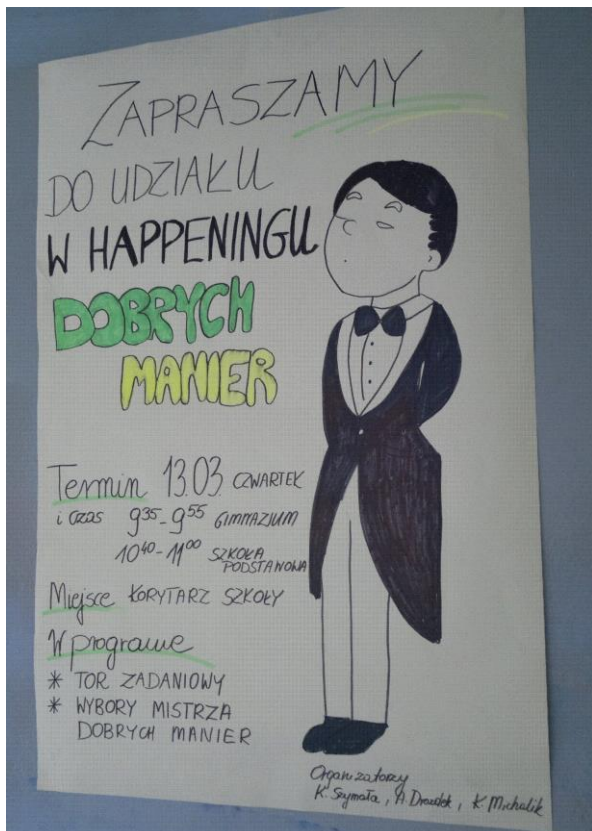 ZAPRASZAMY
DO UDZIAŁU
W HAPPENINGU
DOBRYCH
MANIER
Termin 13.03. CZWARTEK
i czas 9³⁵-9⁵⁵ GIMNAZJUM
10⁴⁰-11⁰⁰ SZKOŁA
PODSTAWOWA
Miejsce KORYTARZ SZKOŁY
W programie
* TOR ZADANIOWY
* WYBORY MISTRZA
DOBRYCH MANIER
Organizatorzy
K. , A. , K. Michalik